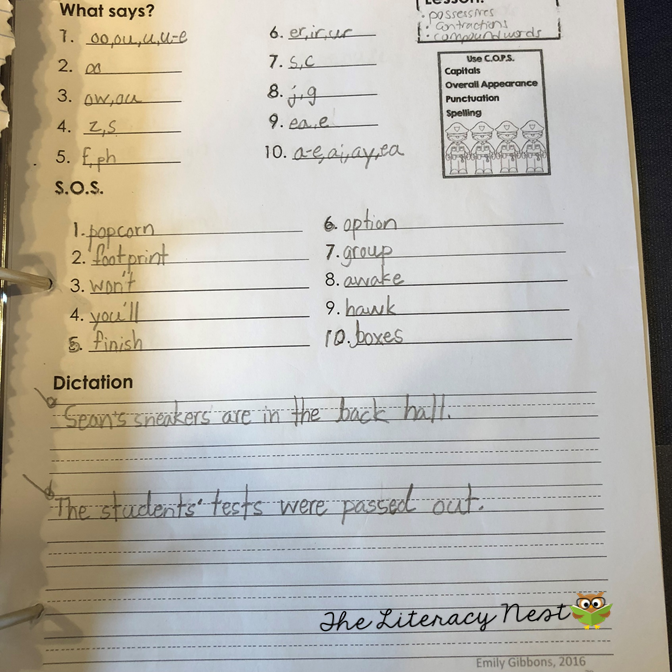 Lesson:
• possessives
• contractions
• compound words
What says?
1. oo,ou,u,u-e
2. oo
3. ow,ou
4. z,s
5. f,ph
6. er,ir,ur
7. s,c
8. j,g
9. ea,e
10. a-e,ai,ay,ea
Use C.O.P.S.
Capitals
Overall Appearance
Punctuation
Spelling
S.O.S.
1. popcorn
2. footprint
3. won't
4. you'll
5. finish
6. option
7. group
8. awake
9. hawk
10. boxes
Dictation
Sean's sneakers are in the back hall.
The students' tests were passed out.
The Literacy Nest
Emily Gibbons, 2016